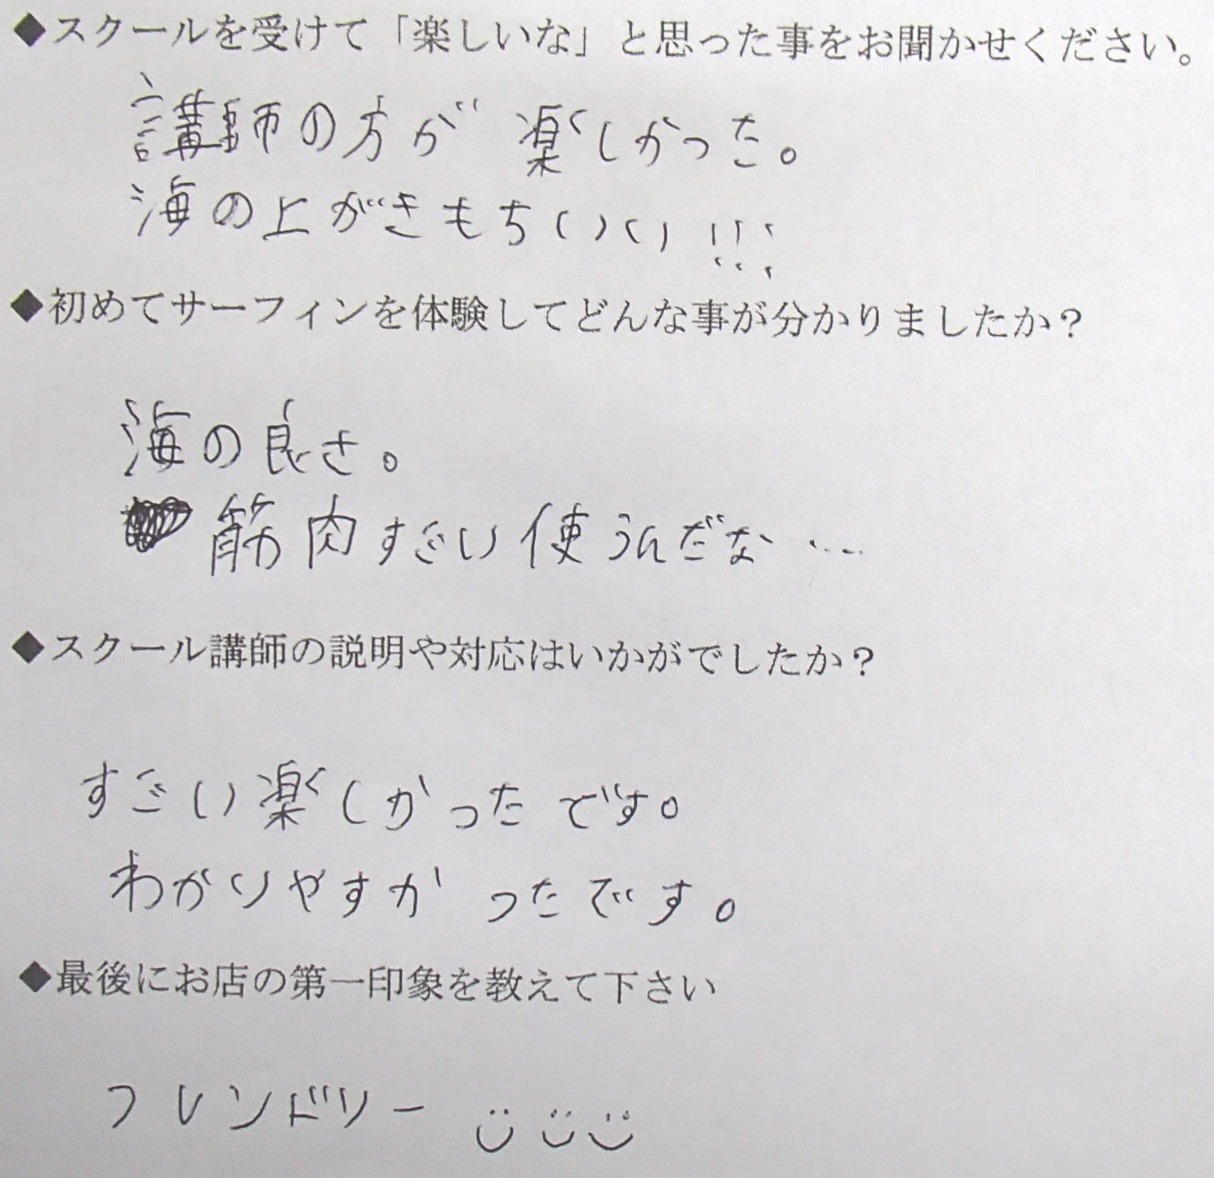 ◆スクールを受けて「楽しいな」と思った事をお聞かせください。
講師の方が楽しかった。
海の上がきもちいい!!!
◆初めてサーフィンを体験してどんな事が分かりましたか？
海の良さ。
筋肉すごい使うんだな…
◆スクール講師の説明や対応はいかがでしたか？
すごい楽しかったです。
わかりやすかったです。
◆最後にお店の第一印象を教えて下さい
フレンドリー